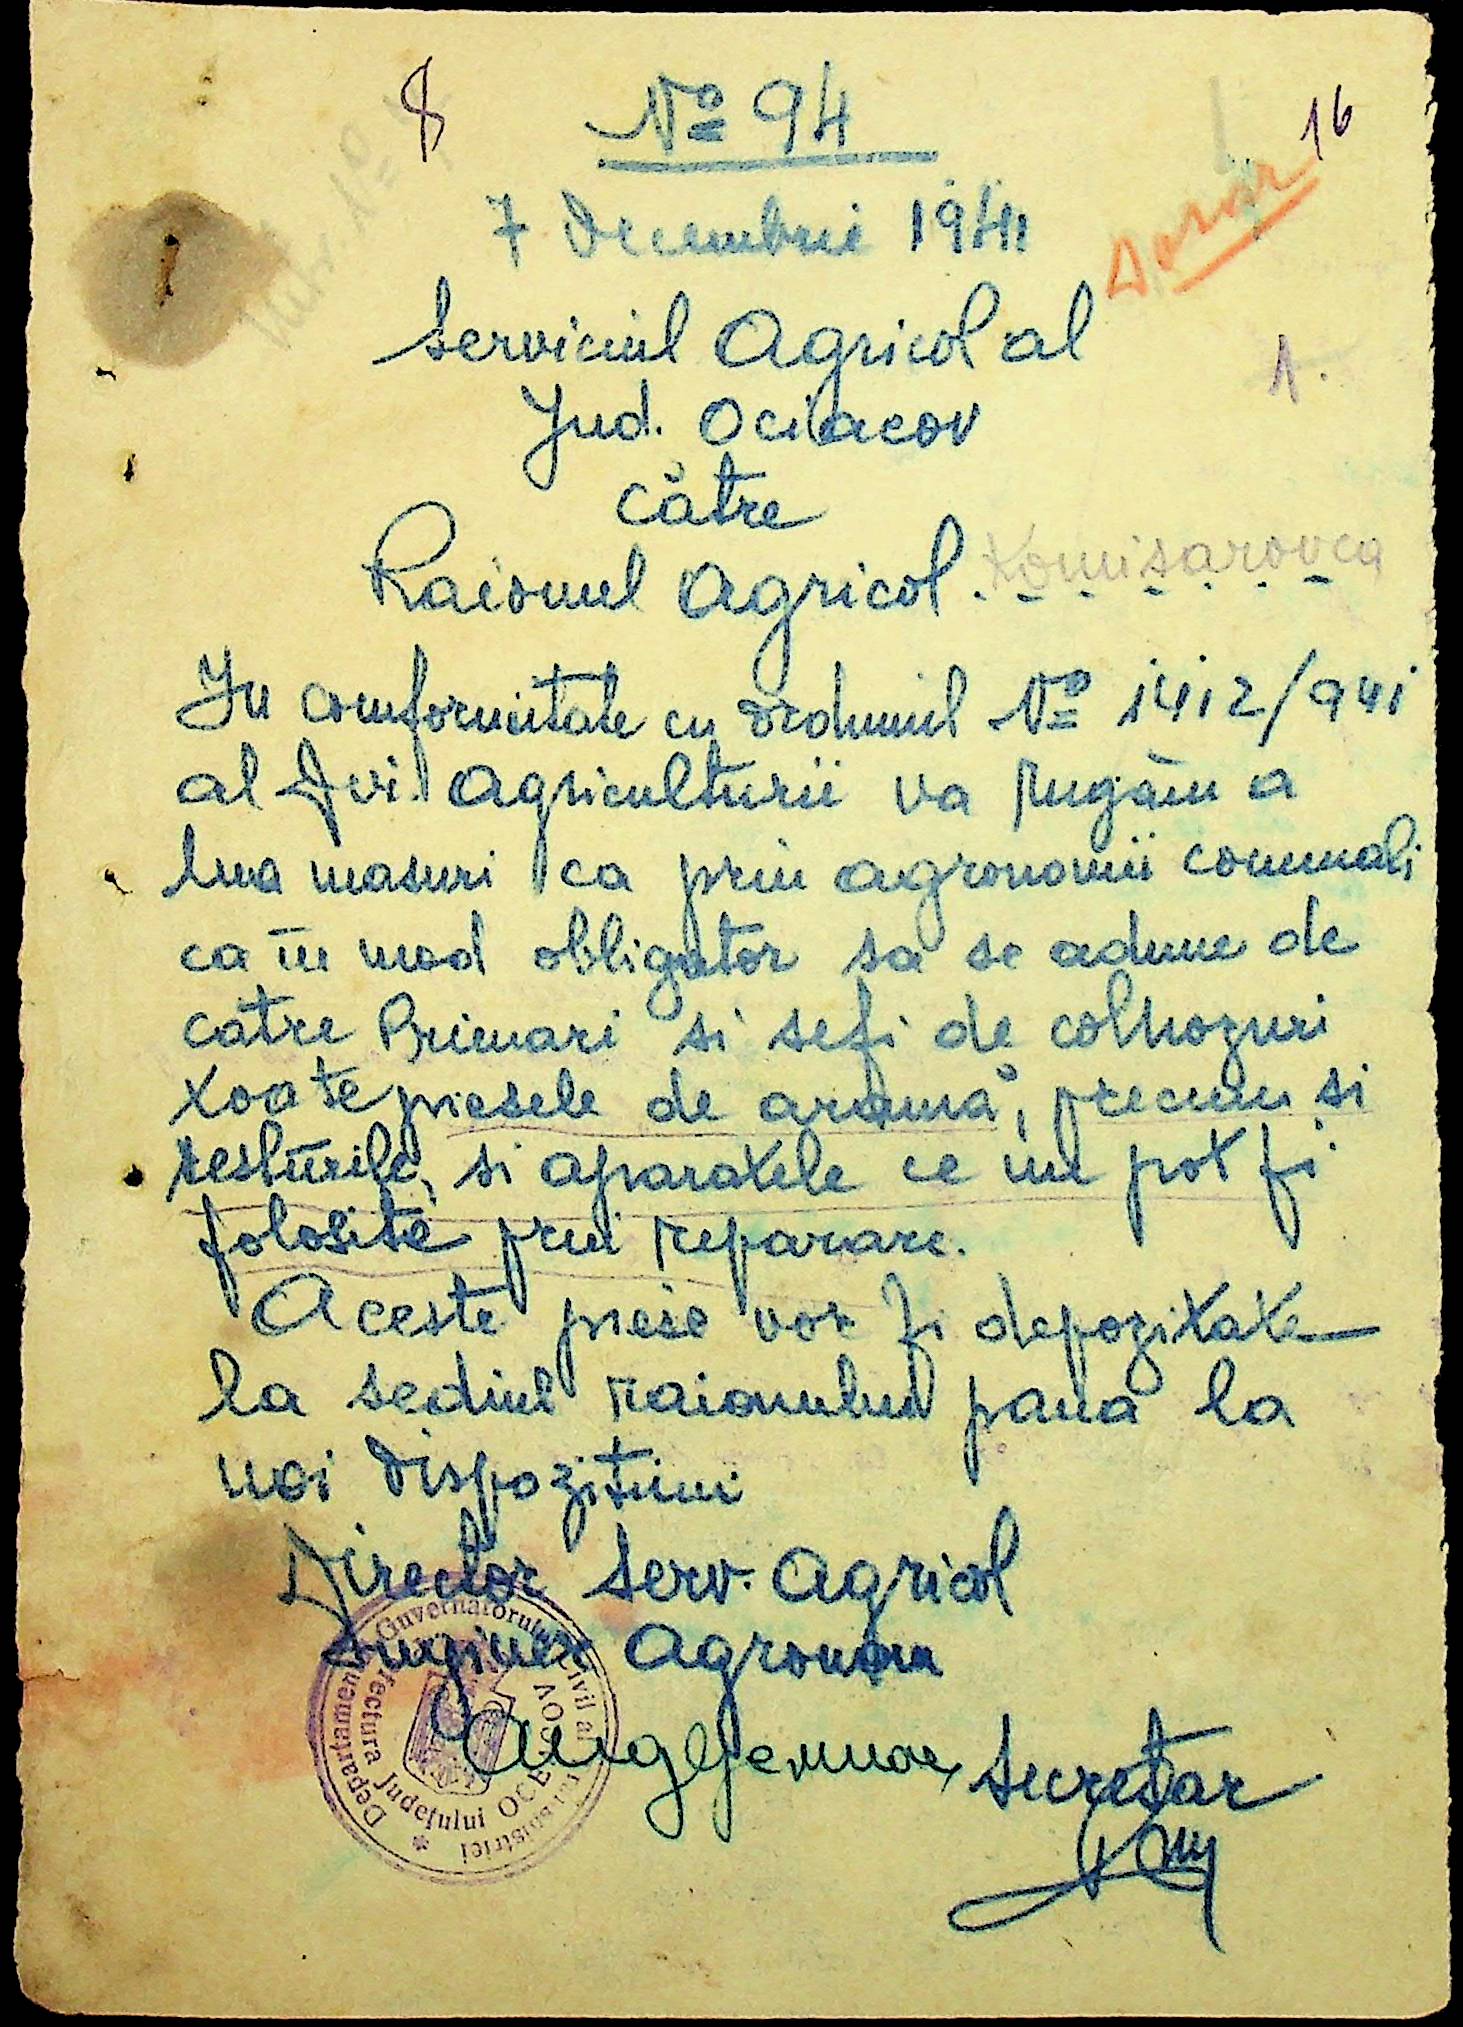 8
Nº 94
16
7 Decembrie 1941
Dosar
Serviciul Agricol al
1.
Jud. Ociacov
către
Raionul Agricol. Komisarovca
In comformitate cu ordinul Nº 1412/941
al Dir. Agriculturii va rugăm a
lua masuri ca prin agronomii comunali
ca in mod obligator sa se adune de
catre Primari si sefi de colhozuri
toate piesele de aramă, precum si
resturile, si aparatele ce nu pot fi
folosite prin reparare.
Aceste piese vor fi depozitate
la sediul raionului pana la
noi dispozitiuni
Director Serv. Agricol
Inginer Agronom
Secretar
Departamentul Guvernatorul Civil al Transnistriei
Prefectura Județului OCEACOV